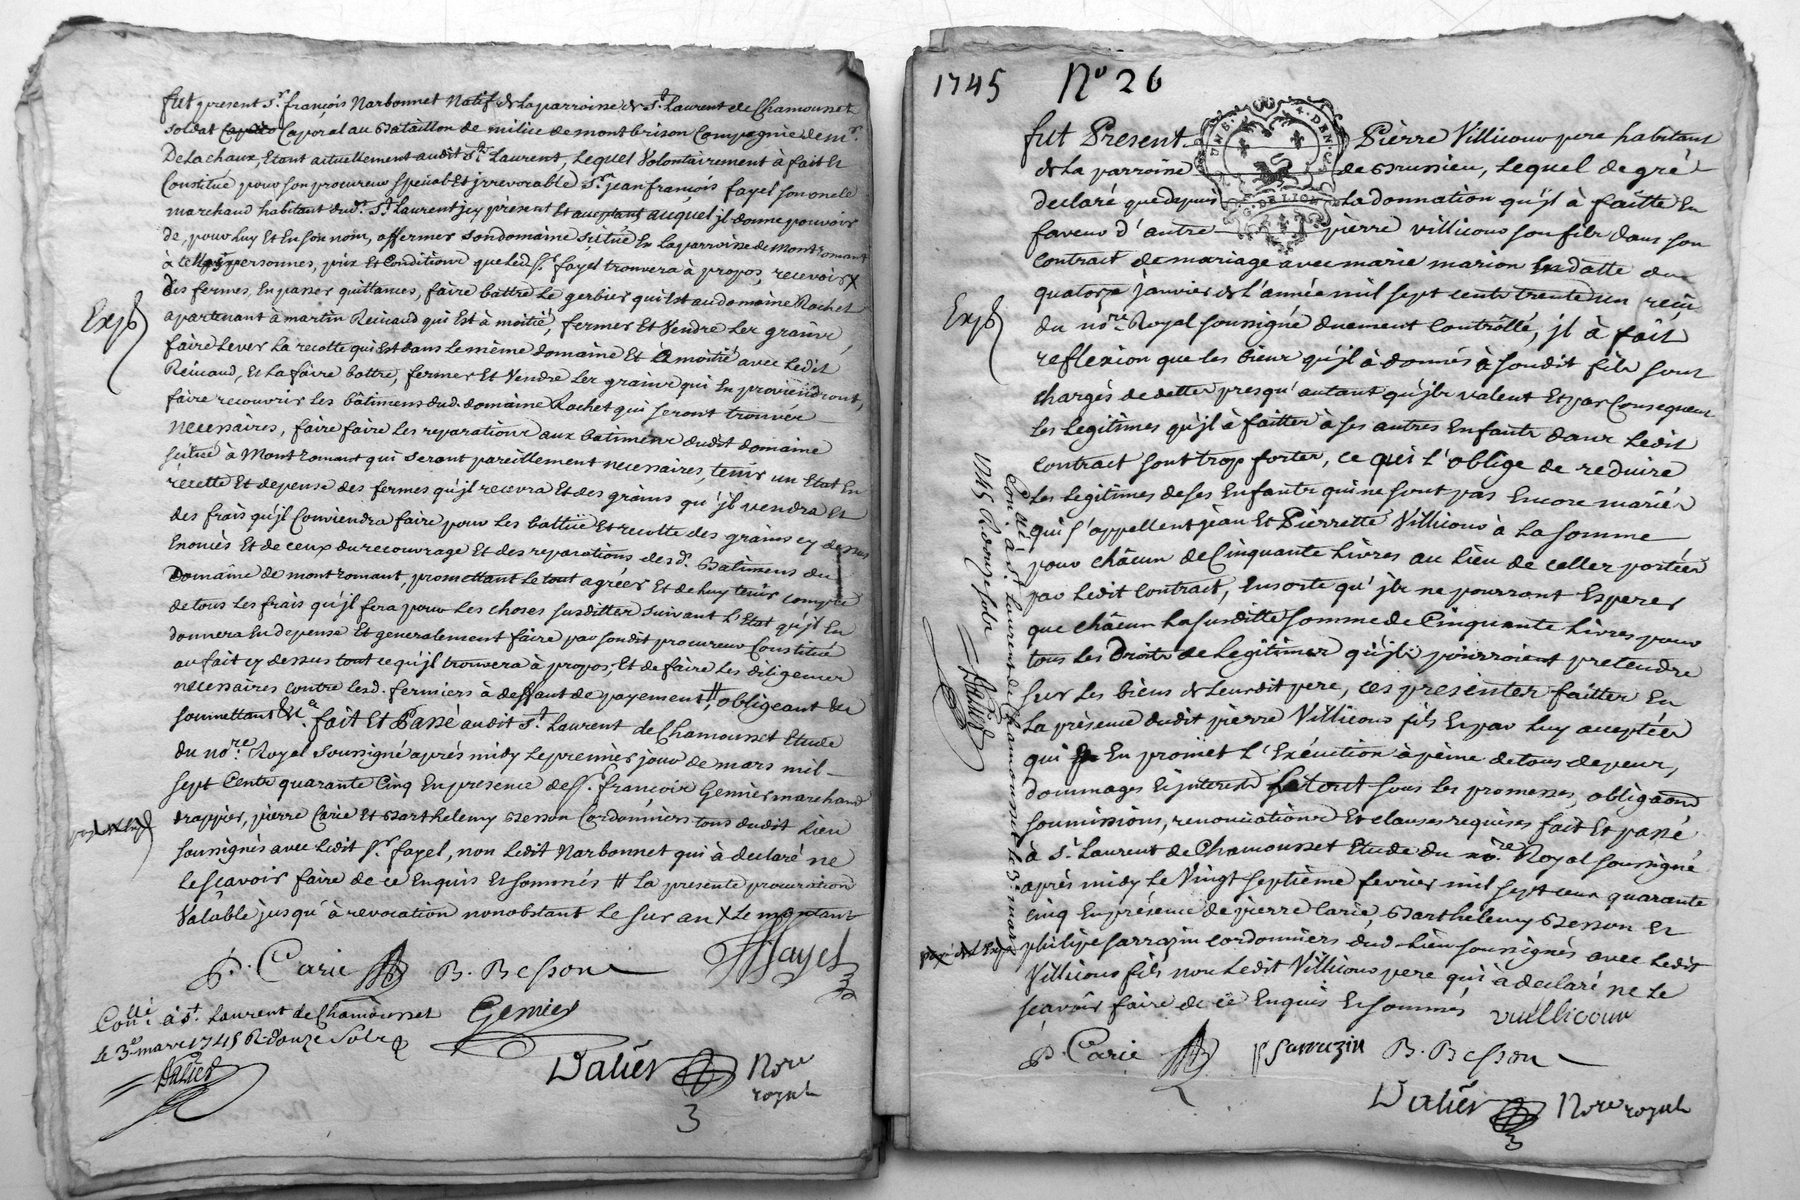 fut present Sr. françois Narbonnet Natif de la parroisse de St. Laurent de Chamousset
soldat Caporal au Bataillon de milice de montbrison Compagnie de mr.
De La chaux, Etant actuellement audit St. Laurent, Lequel Volontairement à fait et
Constitué pour son procureur special Et jrrevocable Sr. jean françois fayel son oncle
marchand habitant dud. St. Laurent jcy présent Et acceptant auquel jl donne pouvoir
de, pour luy Et En son nom, affermer son domaine scitüé En la parroisse de Montromant
à telles personnes, prix Et Conditions que led. Sr. fayel trouvera à propos, recevoir X
des fermes, En passer quittances, faire battre Le gerbier qui Est au domaine Rochet
Exp.
apartenant à martin Reinaud qui Est à moitié, fermer Et Vendre Les grains,
faire Lever La recolte qui Est dans Le même domaine Et à moitié avec Ledit
Reinaud, Et La faire battre, fermer Et Vendre Les grains qui En proviendront,
faire recouvrir Les bâtimens dud. domaine Rochet qui seront trouvés
necessaires, faire faire Les reparations aux batimens dudit domaine
scitué à Montromant qui seront pareillement necessaires, tenir un Etat En
récette Et depense des fermes qu'jl recevra Et des grains qu'jl vendra Et
des frais qu'jl Conviendra faire pour Les battüe Et recolte des grains cy dessus
Enoncés Et de ceux du recouvrage Et des reparations des d. Batimens du
Domaine de montromant, promettant Le tout agréer Et de Luy tenir compte
de tous Les frais qu'jl fera pour Les choses susdittes suivant L'Etat qu'jl En
donnera En depense Et generalement faire par sondit procureur Constitué
au fait cy dessus tout ce qu'jl trouvera à propos, Et de faire Les diligences
necessaires contre lesd. fermiers à deffaut de payement #, obligeant &a
soumettant &a. fait Et Passé audit St. Laurent de Chamousset Etude
du nore. Royal soussigné après midy Le premier jour de mars mil
sept Cents quarante Cinq En presence de Sr. françois Genier marchand
drappier, pierre Carie Et Barthelemy Besson Cordonniers tous dudit Lieu
soussignés avec Ledit Sr. fayel, non Ledit Narbonnet qui à declaré ne
Le sçavoir faire de ce Enquis Et sommés # La presente procuration
Valable jusqu'à revocation nonobstant Le sur an X Le montant
P. Carie B. Besson fayel
Conllé. à St. Laurent de Chamousset
Le 3e. mars 1745 R. douze Sols
Genier
Dalier
Dalier Nore
royal
1745 No 26
fut Present Pierre Villicour pere habitant
de La parroisse de Brussieu, Lequel de gré
declaré que depuis La donnation qu'jl à faitte En
faveur d'autre pierre villicour son fils dans son
contract de mariage avec marie marion En datte du
quatorze janvier de L'année mil sept cents trente un reçu
Exp.
du nore. Royal soussigné duement Controllé, jl à fait
reflexion que les biens qu'jl à donnés à sondit fils sont
chargés de dettes presqu'autant qu'jls valent Et par Consequent
Les Legitimes qu'jl à faittes à ses autres Enfants dans Ledit
contract sont trop fortes, ce qui L'oblige de reduire
Les Legitimes de ses Enfants qui ne sont pas Encore mariés
qui s'appellent jean Et Pierrette Villicour à La somme
pour châcun de Cinquante Livres au Lieu de celles portées
par Ledit contract, En sorte qu'jls ne pourront Esperer
que châcun La susditte somme de Cinquante Livres pour
tous Les Droits de Legitimes qu'jls pourroient pretendre
sur Les biens de Leurdit pere, ces presentes faittes En
La présence dudit pierre Villicour fils Et par Luy acceptées
qui En promet L'Exécution à peine de tous depens,
dommages Et jnterests Le tout sous Les promesses, obligaons
soumissions, renonciations Et clauses requises fait Et passé
à St. Laurent de Chamousset Etude du nore. Royal soussigné
après midy Le Vingt septième fevrier mil sept cens quarante
cinq En présence de pierre Carie, Barthelemy Besson Et
philipe sarrazin cordonniers dud. Lieu soussignés avec Ledit
Villicour fils non Ledit Villicour pere qui à declaré ne Le
sçavoir faire de ce Enquis Et sommés
Conllé. à St. Laurent de Chamousset Le 3. mars
1745 R. douze sols
Dalier
vuillicour
P. Carie P Sarrazin B. Besson
Dalier Nore royal